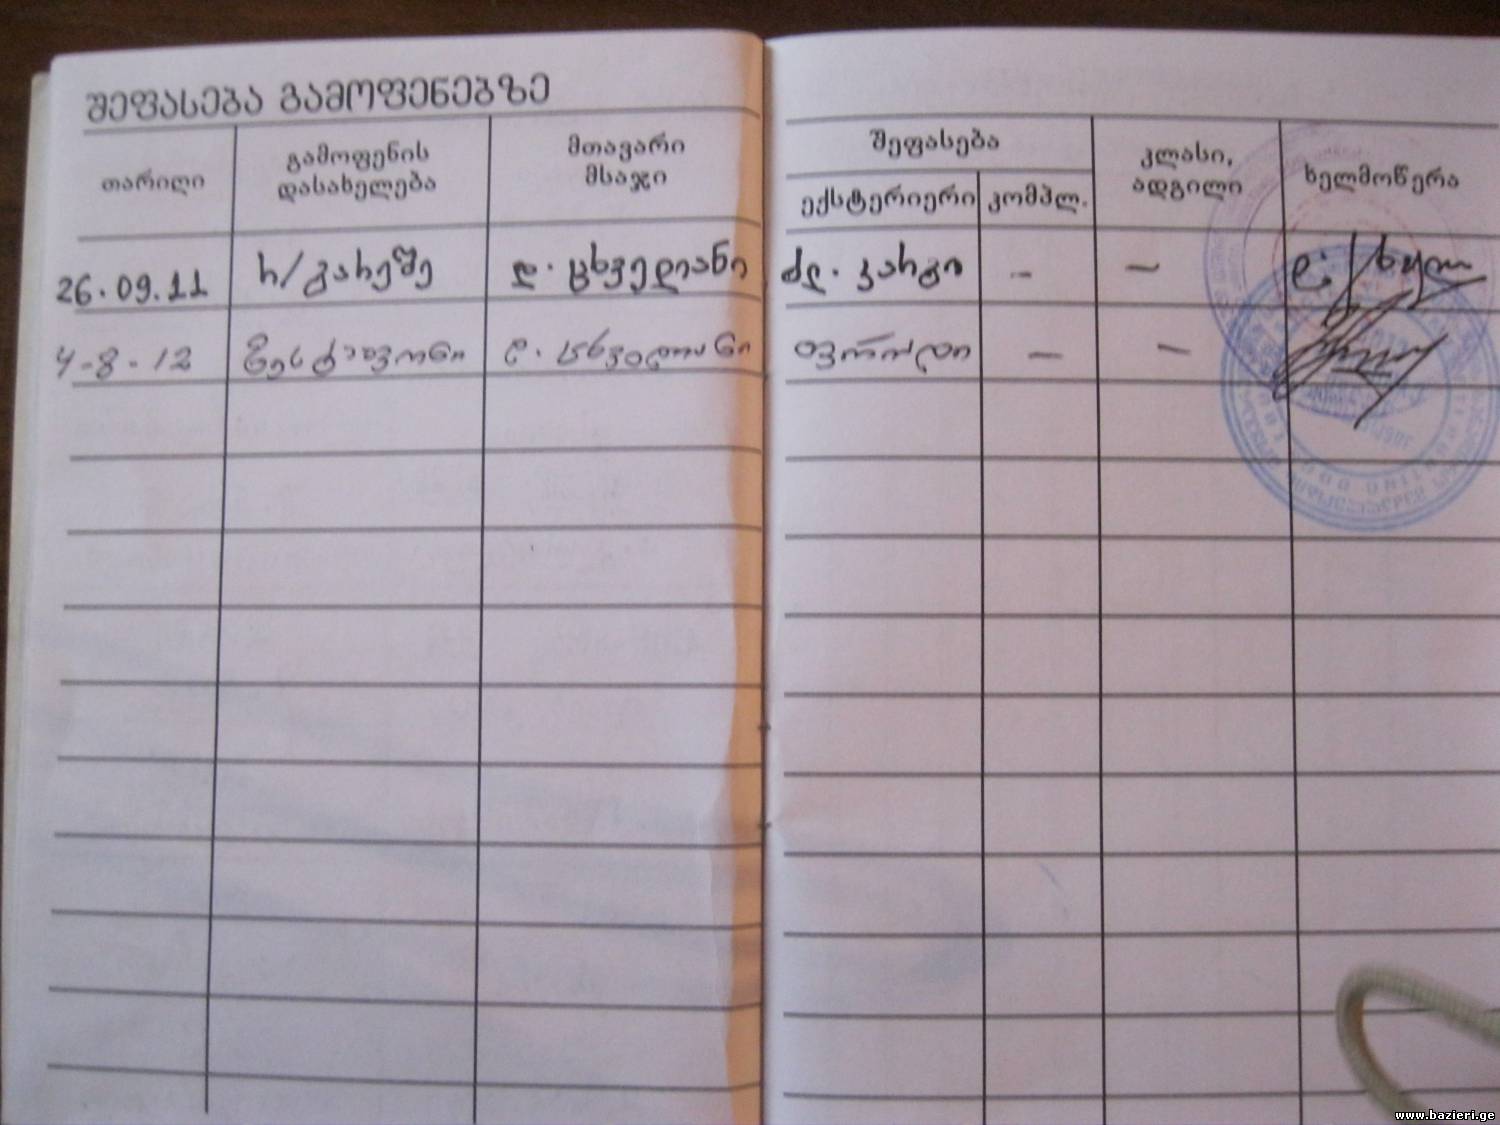 შეფასება გამოფენებზე
თარიღი
გამოფენის
დასახელება
მთავარი
მსაჯი
შეფასება
ექსტერიერი კომპლ.
კლასი,
ადგილი
ხელმოწერა
26.09.11 ს/გარეშე დ. ცხვედიანი ძლ. კარგი - -
4-8-12 ფესტივალი დ. ცხვედიანი - -
www.bazieri.ge